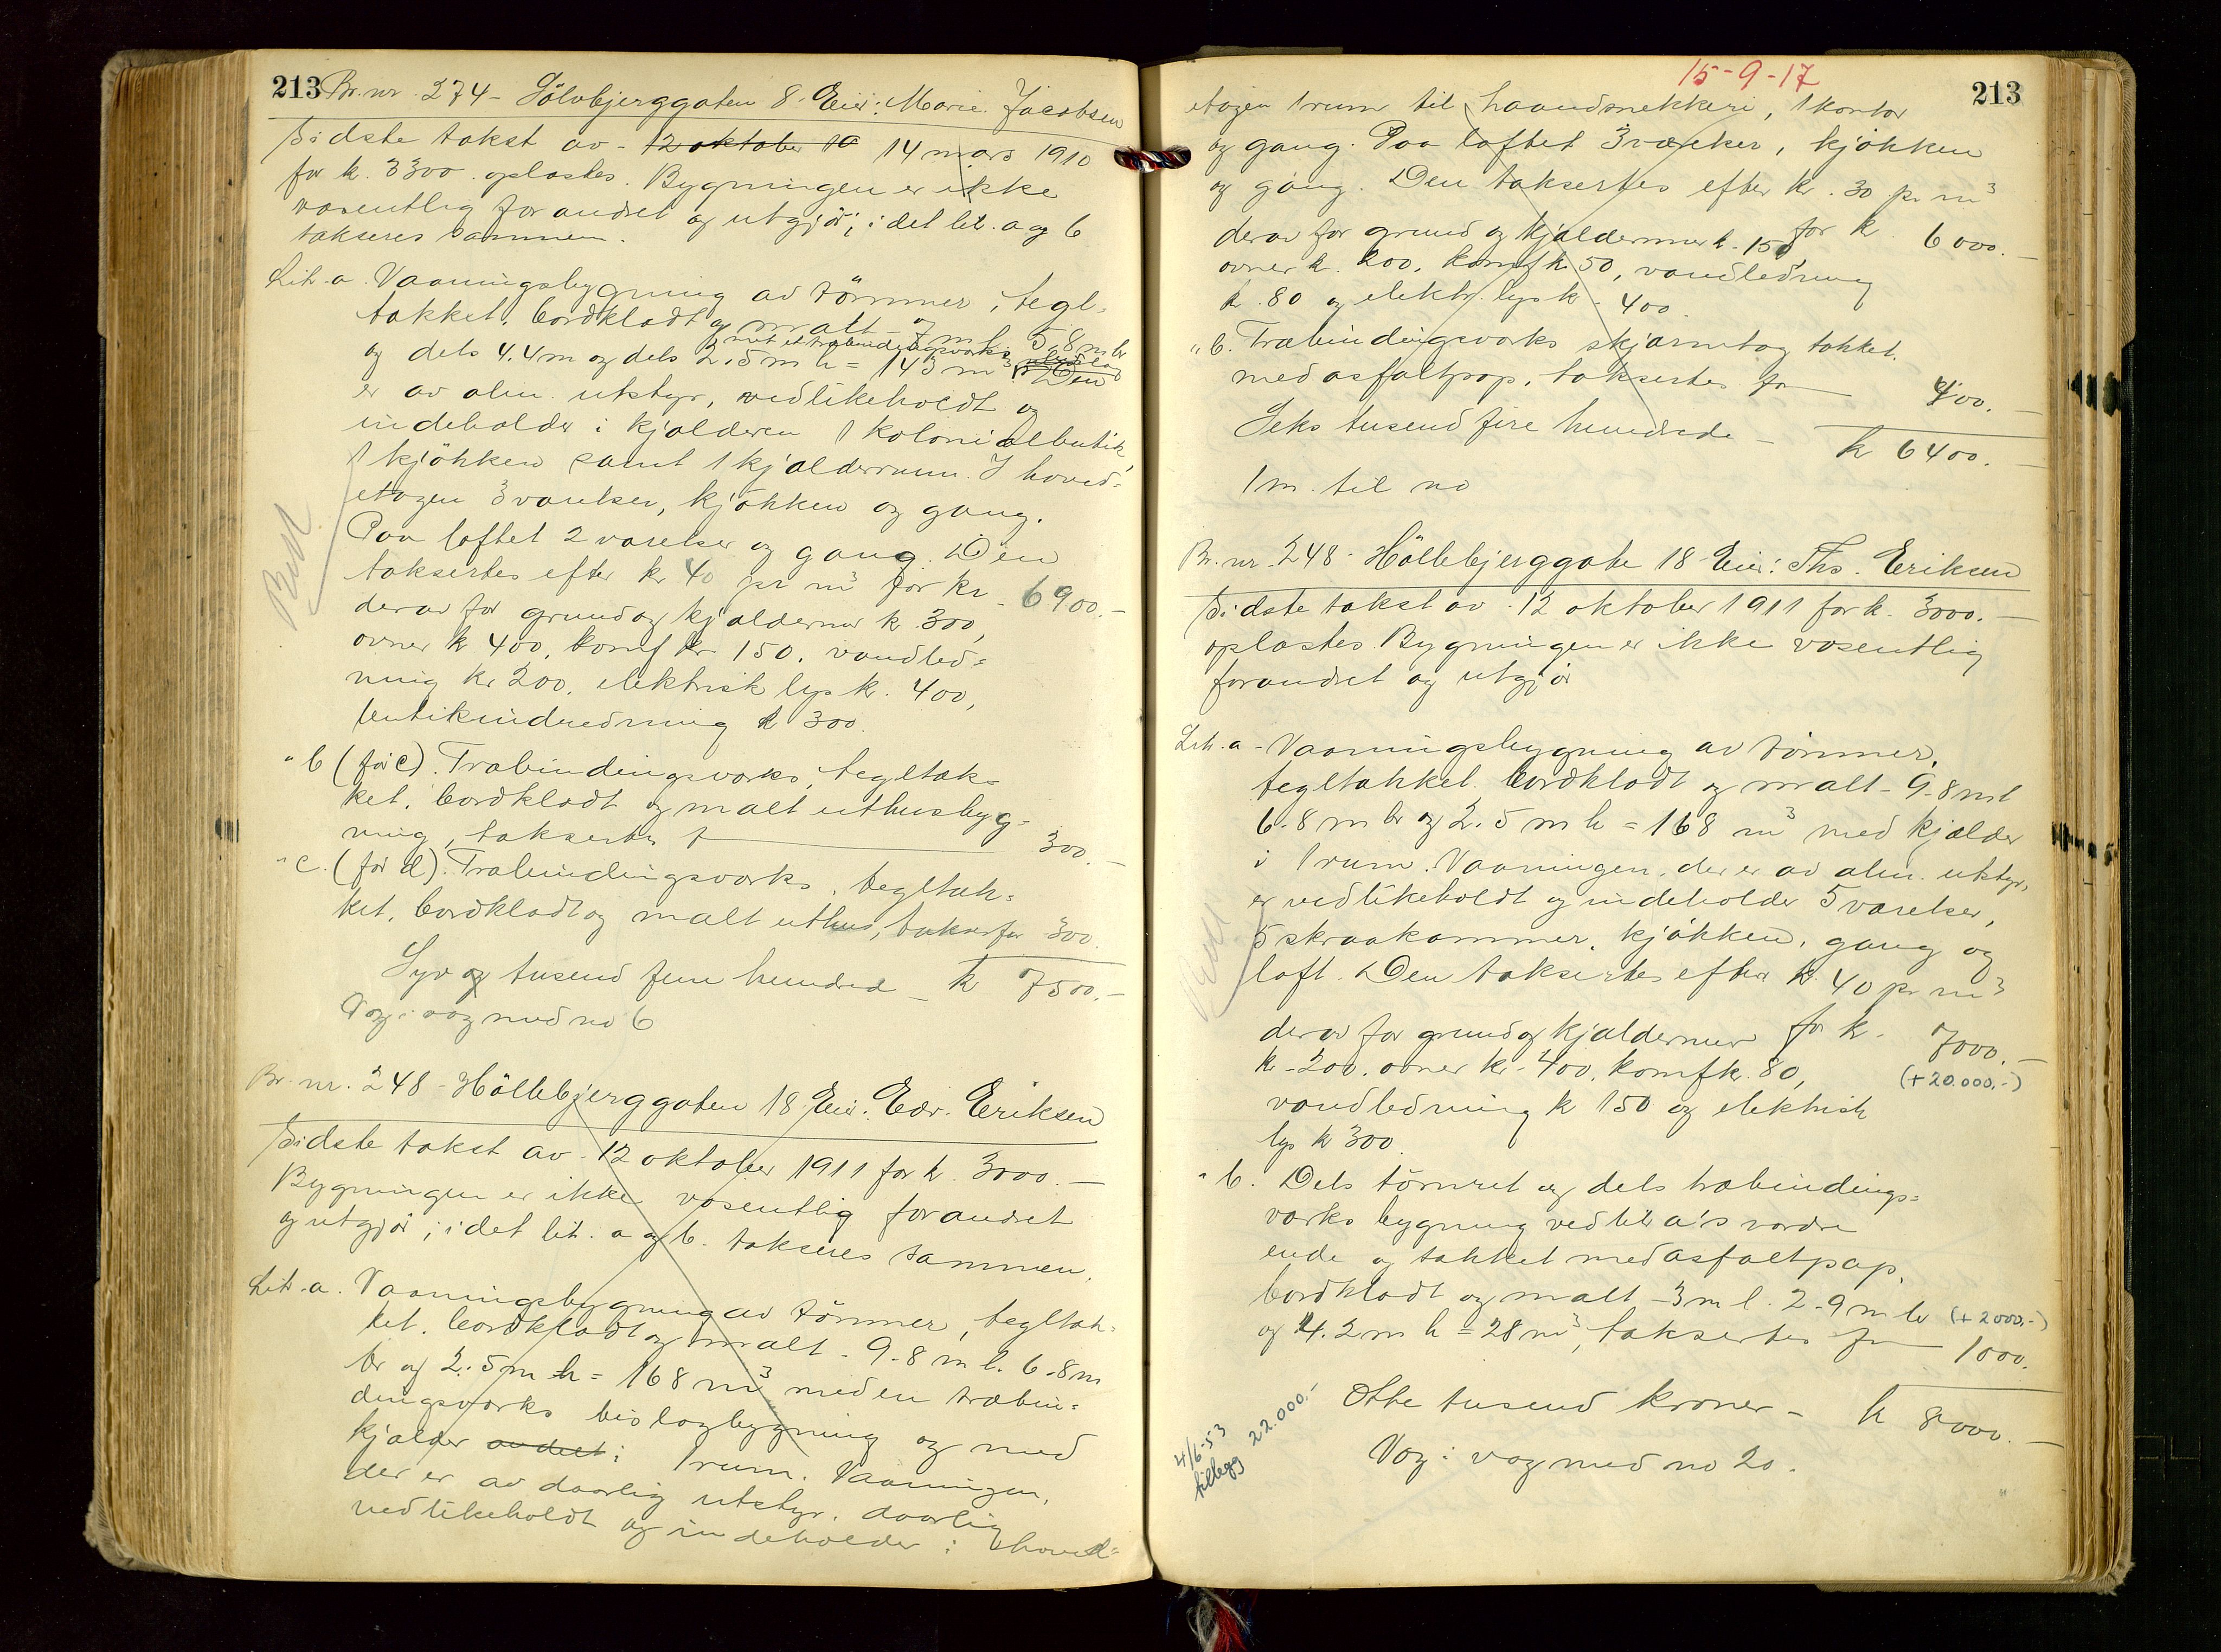 213 Br. nr. 274 - Sölvbjerggaten 8. Eier: Marie Jacobsen
Sidste takst av - 12 oktober 10 14 mars 1910
for k. 3300. oplæstes. Bygningen er ikke
væsentlig forandret og utgjör; idet lit. a og b
takseres sammen.
Lit. a. Vaaningsbygning av tömmer, tegl-
tækket, bordklædt og malt - 7 m l. 5,8 m br
og met et træbindingsverks
og dels 4.4 m og dels 2.5 m h = 145 m³. Den
er av alm. utstyr, vedlikeholdt og
indeholder i kjælderen 1 kolonialbutik,
1 kjökken samt 1 kjælderrum. I hoved-
etagen 3 værelser, kjökken og gang.
Paa loftet 2 værelser og gang. Den
taksertes efter kr 40 pr m³ for kr. 6900.-
derav for grund og kjældermur k 300,
ovner k 400, komf kr 150, vandled=
ning kr 200, elektrisk lys k. 400,
butikindredning k 300.
" b (för c). Træbindingsverks, tegltæk=
ket, bordklædt og malt uthusbyg=
ning, taksertes f 300.-
" c. (för d). Træbindingsverks, tegltæk=
ket, bordklædt og malt uthus, takser for 300.
Syv og tusend fem hundred - k 7500.-
Væg i væg med no 6
Br. nr. 248 - Höllebjerggaten 18 Eier: Edv. Eriksen
Sidste takst av - 12 oktober 1911 for k. 3000.-
Bygningen er ikke væsentlig forandret
og utgjör; idet lit. a og b. takseres sammen.
Lit. a. Vaaningsbygning av tömmer, tegltæk-
ket, bordklædt og malt - 9.8 m l. 6.8 m
br og 2.5 m h = 168 m³ med en træbin=
dingsverks bislagbygning og med
kjælder avdelt i 1 rum. Vaaningen,
der er av daarlig utstyr, daarlig
vedlikeholdt og indeholder i hoved=
15-9-17
213
etagen 1 rum til haandsnekkeri, 1 kontor
og gang. Paa loftet 3 værelser, kjökken
og gang. Den taksertes efter kr. 30 pr m³
for k 6000.-
derav for grund og kjældermur k. 150,
ovner k. 200, komf k. 50, vandledning
k. 80 og elektr. lys k. 400.
" b. Træbindingsverks skjærmtag tækket
med asfaltpap, taksertes for 400.-
Seks tusend fire hundrede - k 6400.-
1 m. til no
Br. nr. 248 - Höllebjerggate 18 Eier: Ths. Eriksen
Sidste takst av - 12 oktober 1911 for k. 3000.-
oplæstes. Bygningen er ikke væsentlig
forandret og utgjör
Lit. a - Vaaningsbygning av tömmer,
tegltækket, bordklædt og malt - 9.8 m l
6.8 m br og 2.5 m h = 168 m³ med kjælder
i 1 rum. Vaaningen, der er av alm. utstyr,
er vedlikeholdt og indeholder 5 værelser,
5 skraakammer, kjökken, gang og
loft. Den taksertes efter k. 40 pr m³
for k. 7000.-
derav for grund og kjældermur
(+20.000.-)
k. 200, ovner kr. 400, komf k. 80,
vandledning k 150 og elektrisk
lys k 300.
" b. Dels tömret og dels træbindings=
værks bygning ved lit a's nordre
ende og tækket med asfaltpap,
bordklædt og malt - 3 m l. 2.9 m br (+2000.-)
og 4.2 m h = 28 m³, taksertes for 1000.
Otte tusend kroner - k 8000.-
Væg i væg med no 20.
4/6-53
tillegg 22.000.-